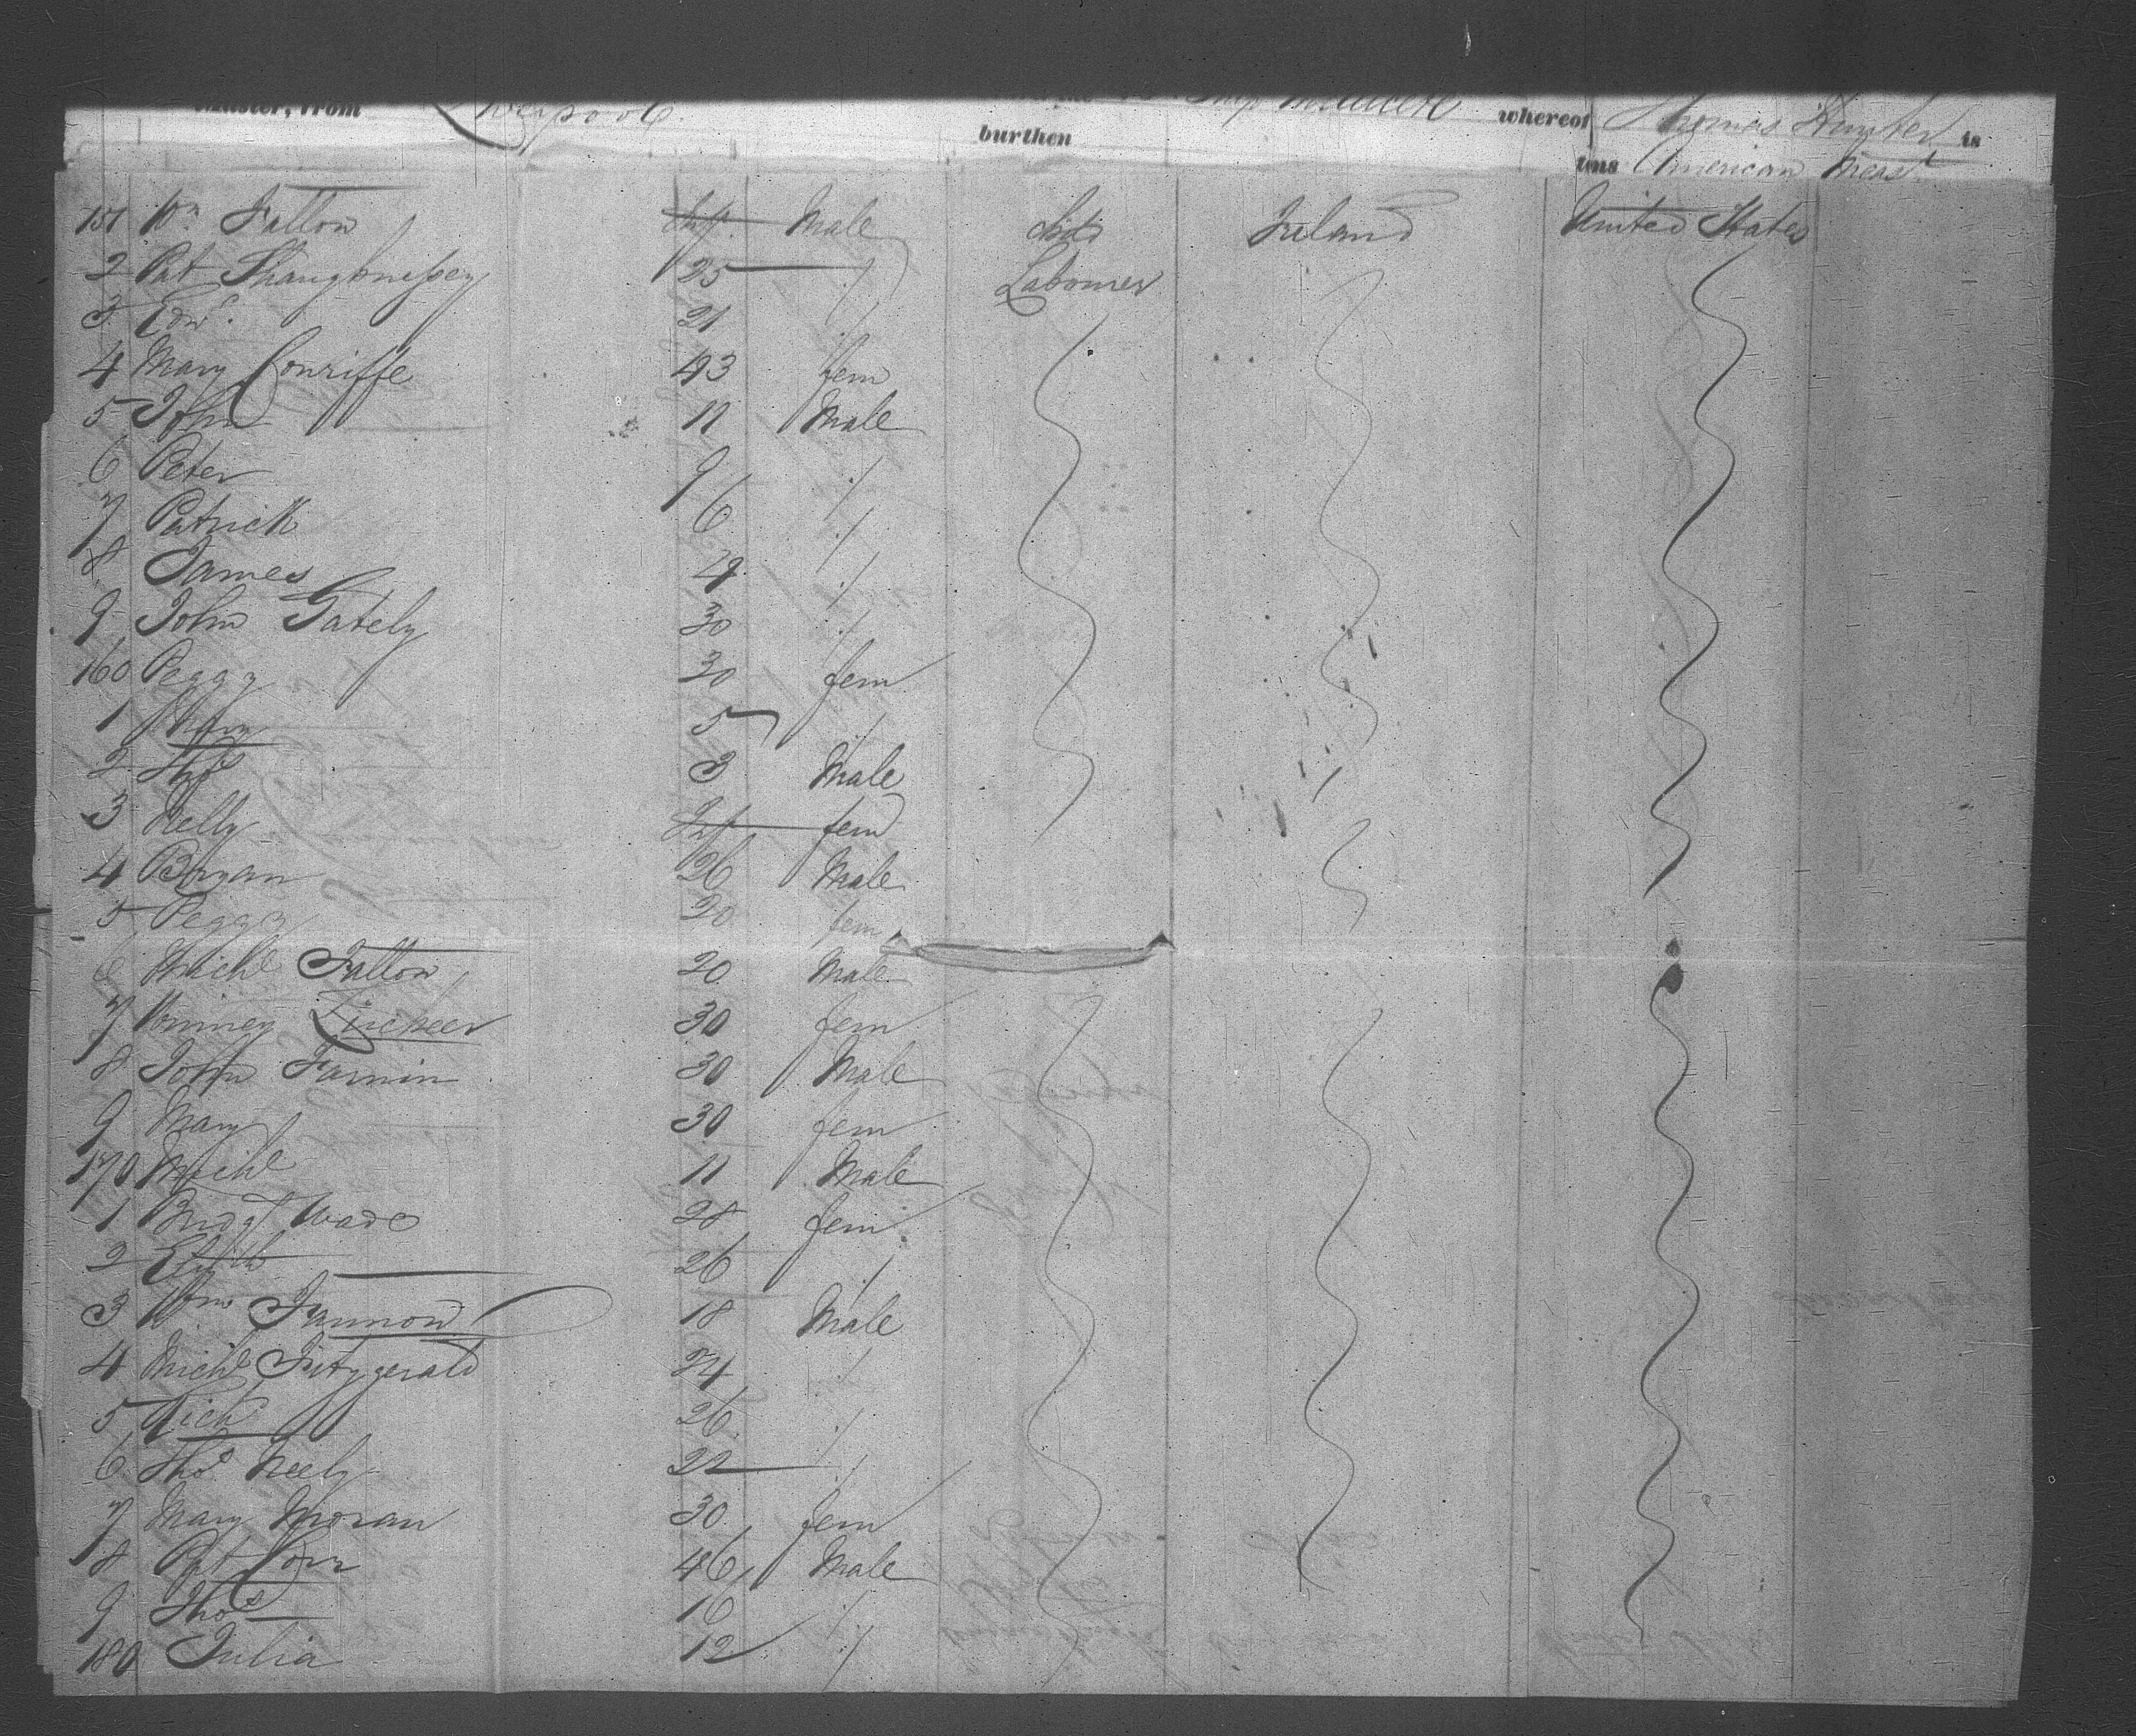 Master, from Liverpool burthen whereof Thomas Hunter is
tons American Meast
151 Wm Fallon Inf. Male Child Ireland United States
2 Pat Shaughnessey 25 " Labourer
3 Edwd 21 "
4 Mary Conriffe 43 fem
5 John 11 Male
6 Peter 9 "
7 Patrick 6 "
8 James 24 "
9 John Gately 30 "
160 Peggy 30 fem
1 Mary 5 "
2 Thos 3 Male
3 Nelly Inf fem
4 Bryan 26 Male
5 Peggy 20 fem
6 Michl Fallon 20 Male
7 Winney 30 fem
8 John Farnin 30 Male
9 Mary 30 fem
170 Michl 11 Male
1 Bridgt Wade 28 fem
2 Elizth 26 "
3 Wm Fannon 18 Male
4 Michl Fitzgerald 24 "
5 Rich 26 "
6 Thos Neely 22 "
7 Mary Moran 30 fem
8 Pat Corr 46 Male
9 Thos 16 "
180 Julia 12 "